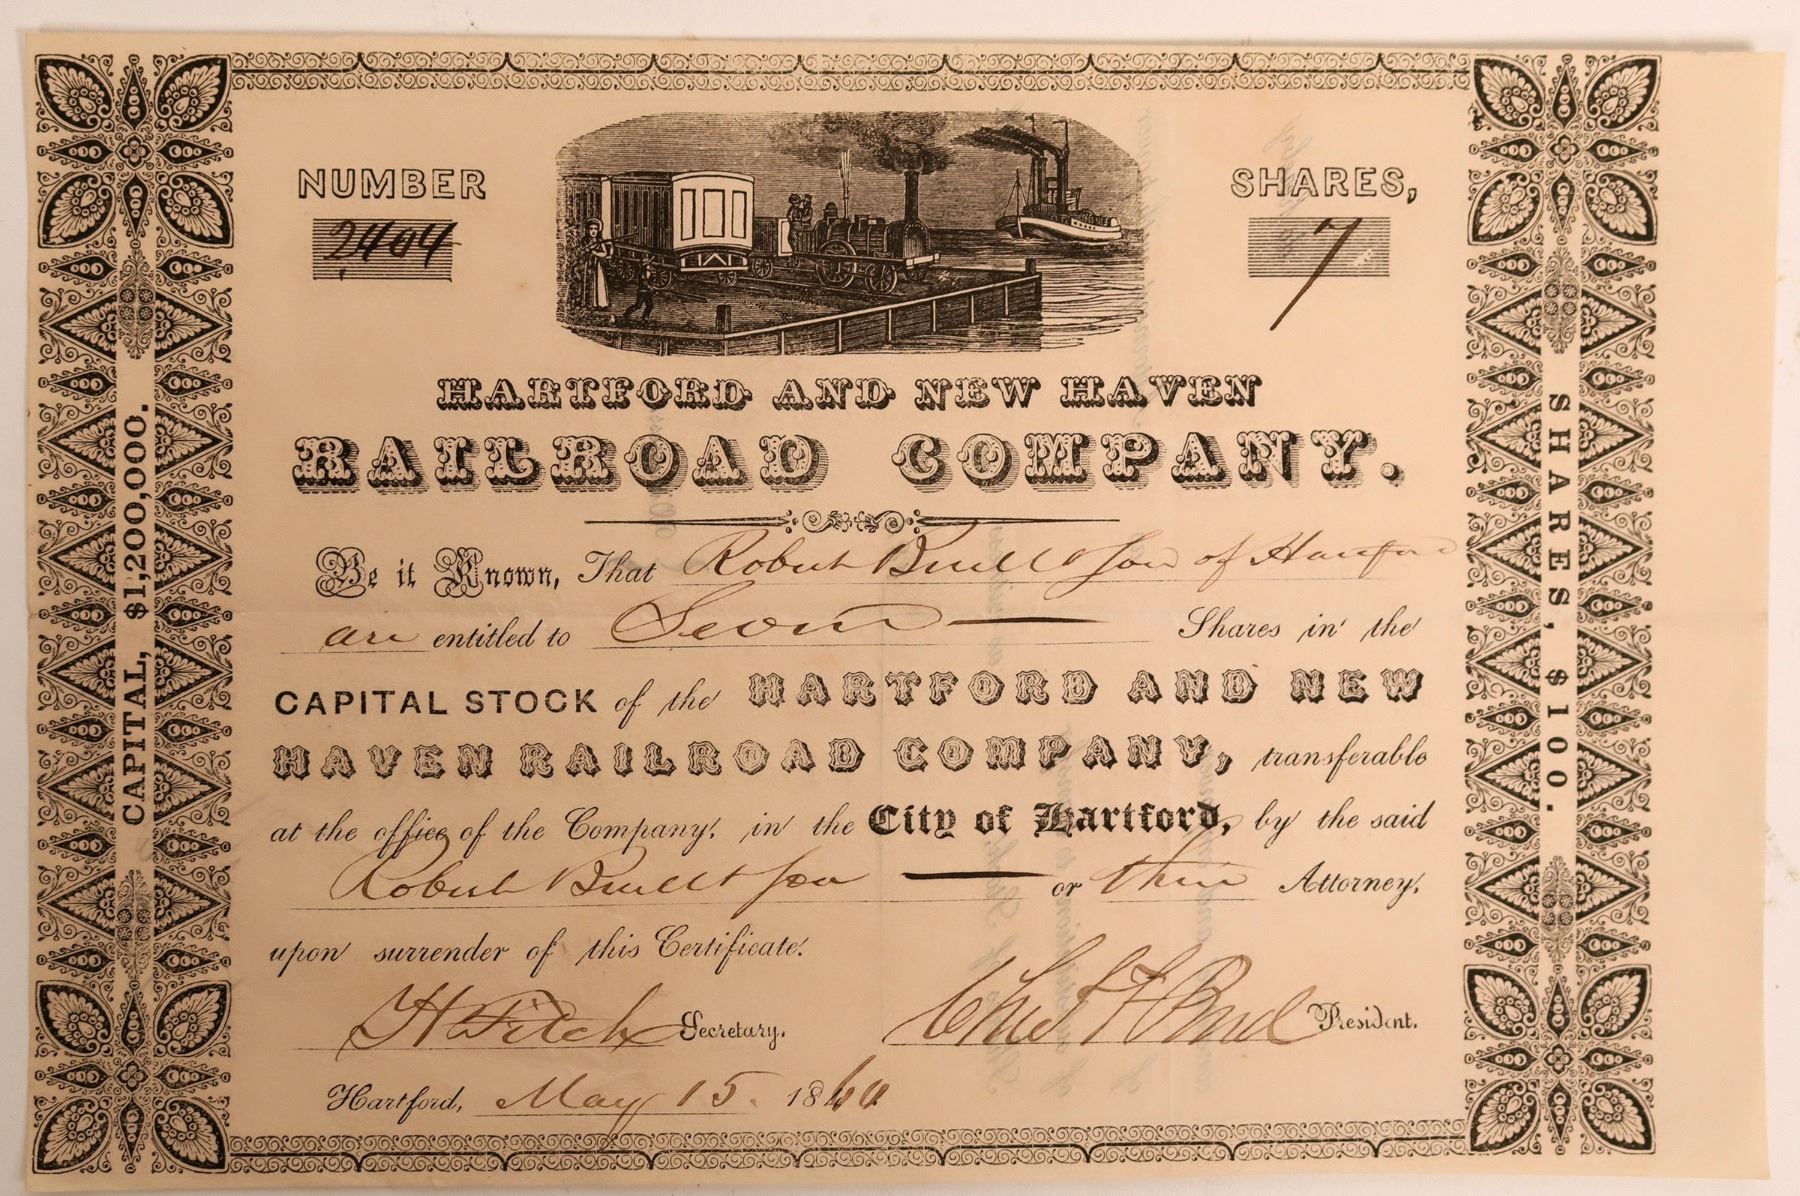 NUMBER
2404
SHARES,
7
HARTFORD AND NEW HAVEN
RAILROAD COMPANY.
Be it Known, That Robert Buell & Son of Hartford
are entitled to Seven Shares in the
CAPITAL STOCK of the HARTFORD AND NEW
HAVEN RAILROAD COMPANY, transferable
at the office of the Company, in the City of Hartford, by the said
Robert Buell & Son or their Attorney,
upon surrender of this Certificate.
H Fitch Secretary.
Chas F Pond President.
Hartford, May 15. 1860
CAPITAL, $1,200,000.
SHARES, $100.